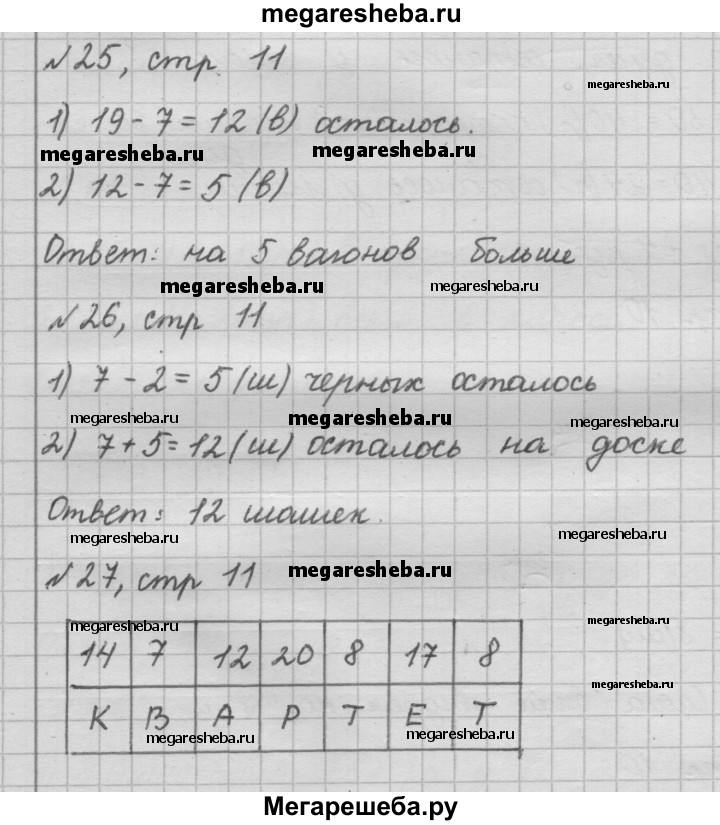 megaresheba.ru
№25, стр 11
megaresheba.ru
1) 19 - 7 = 12 (в) осталось.
megaresheba.ru megaresheba.ru
2) 12 - 7 = 5 (в)
Ответ: на 5 вагонов больше
megaresheba.ru megaresheba.ru
№26, стр 11
1) 7 - 2 = 5 (ш) черных осталось
megaresheba.ru megaresheba.ru megaresheba.ru
2) 7 + 5 = 12 (ш) осталось на доске
Ответ: 12 шашек.
megaresheba.ru megaresheba.ru
№27, стр 11 megaresheba.ru
megaresheba.ru megaresheba.ru
14 7 12 20 8 17 8
К В А Р Т Е Т
megaresheba.ru megaresheba.ru
Мегарешеба.ру